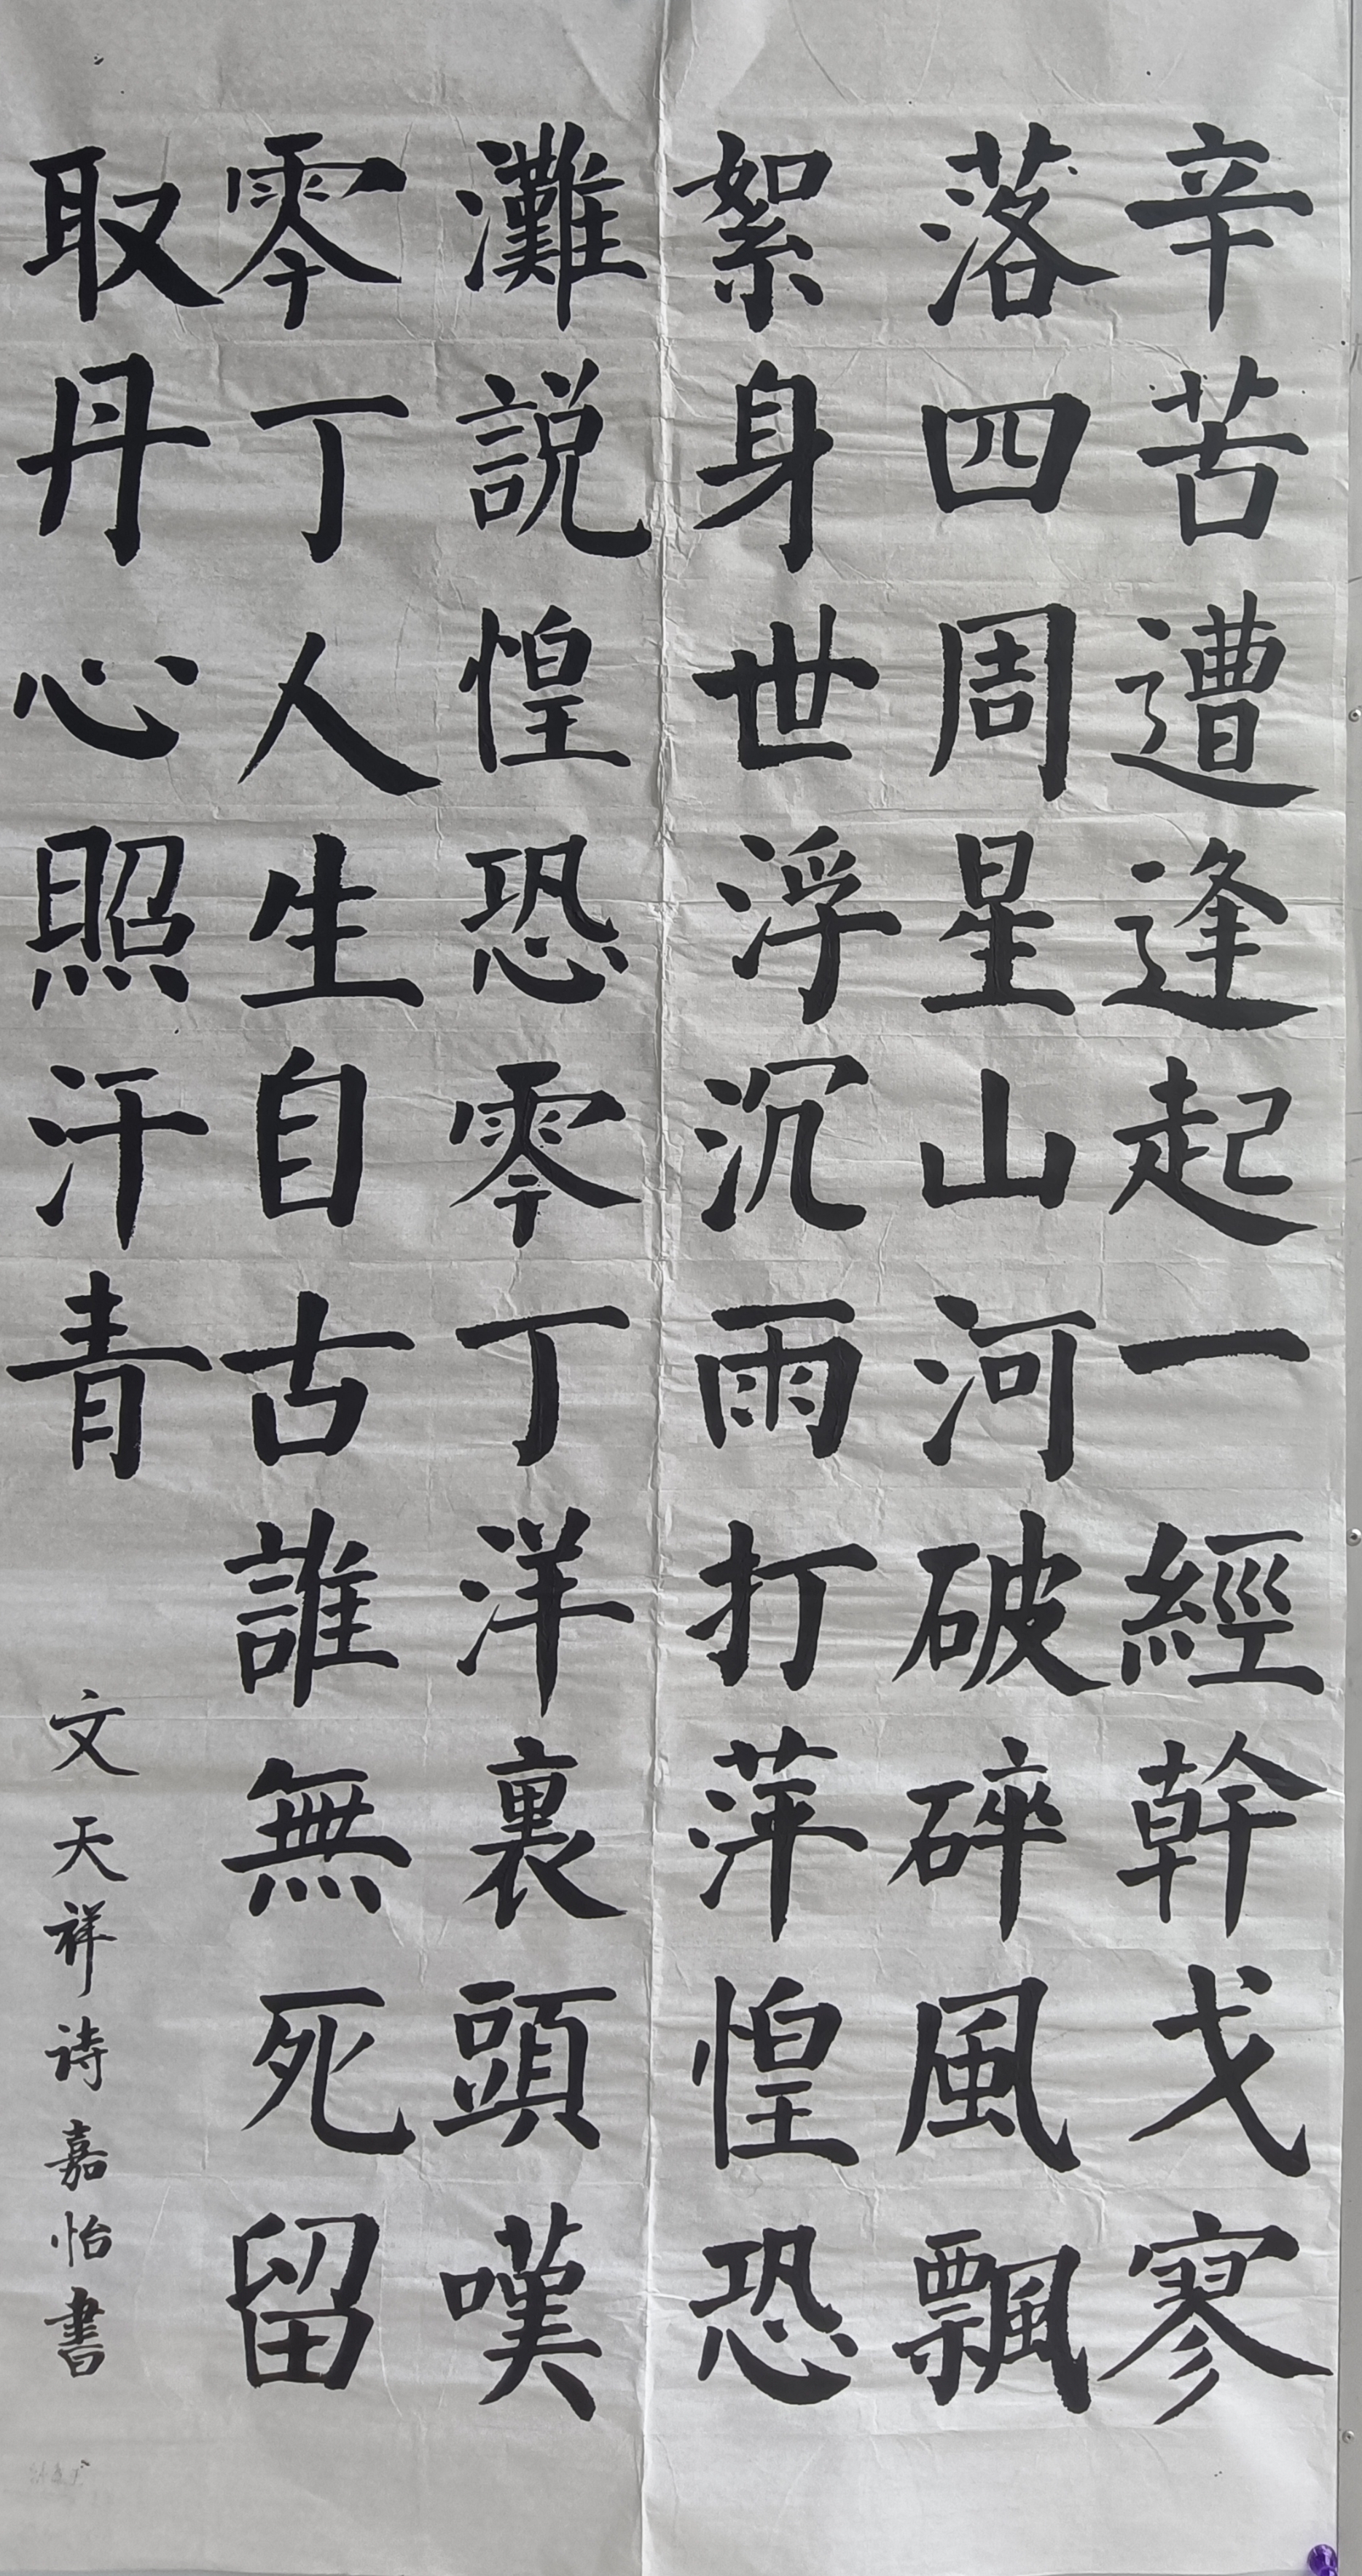 辛苦遭逢起一經幹戈寥
落四周星山河破碎風飄
絮身世浮沉雨打萍惶恐
灘説惶恐零丁洋裏頭嘆
零丁人生自古誰無死留
取丹心照汗青
文天祥诗嘉怡書